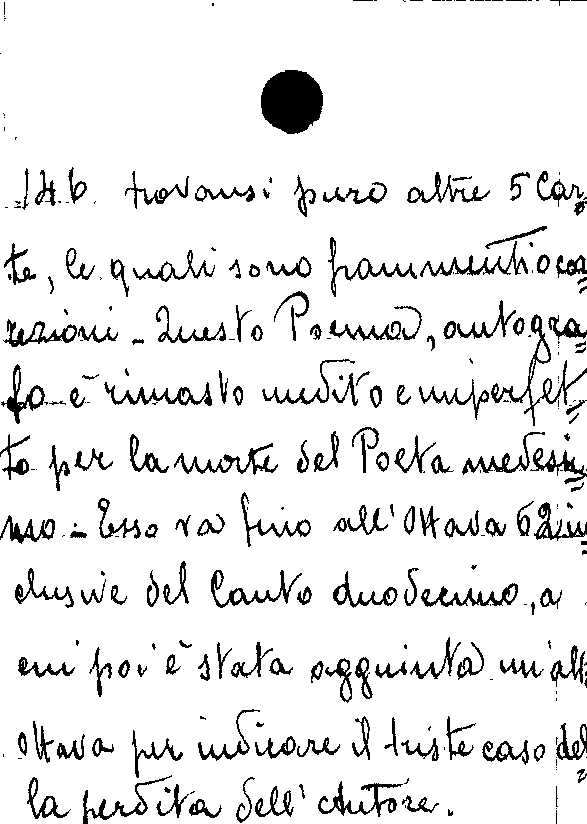 146 trovansi puro altre 5 Car=
te, le quali sono frammenti o cor=
rezioni - Questo Poema, autogra=
fo è rimasto inedito e imperfet=
to per la morte del Poeta medesi=
mo - Esso va fino all'Ottava 62 in=
clusive del Canto duodecimo, a
cui poi è stata aggiunta un'alt
Ottava per indicare il triste caso del=
la perdita dell'Autore.